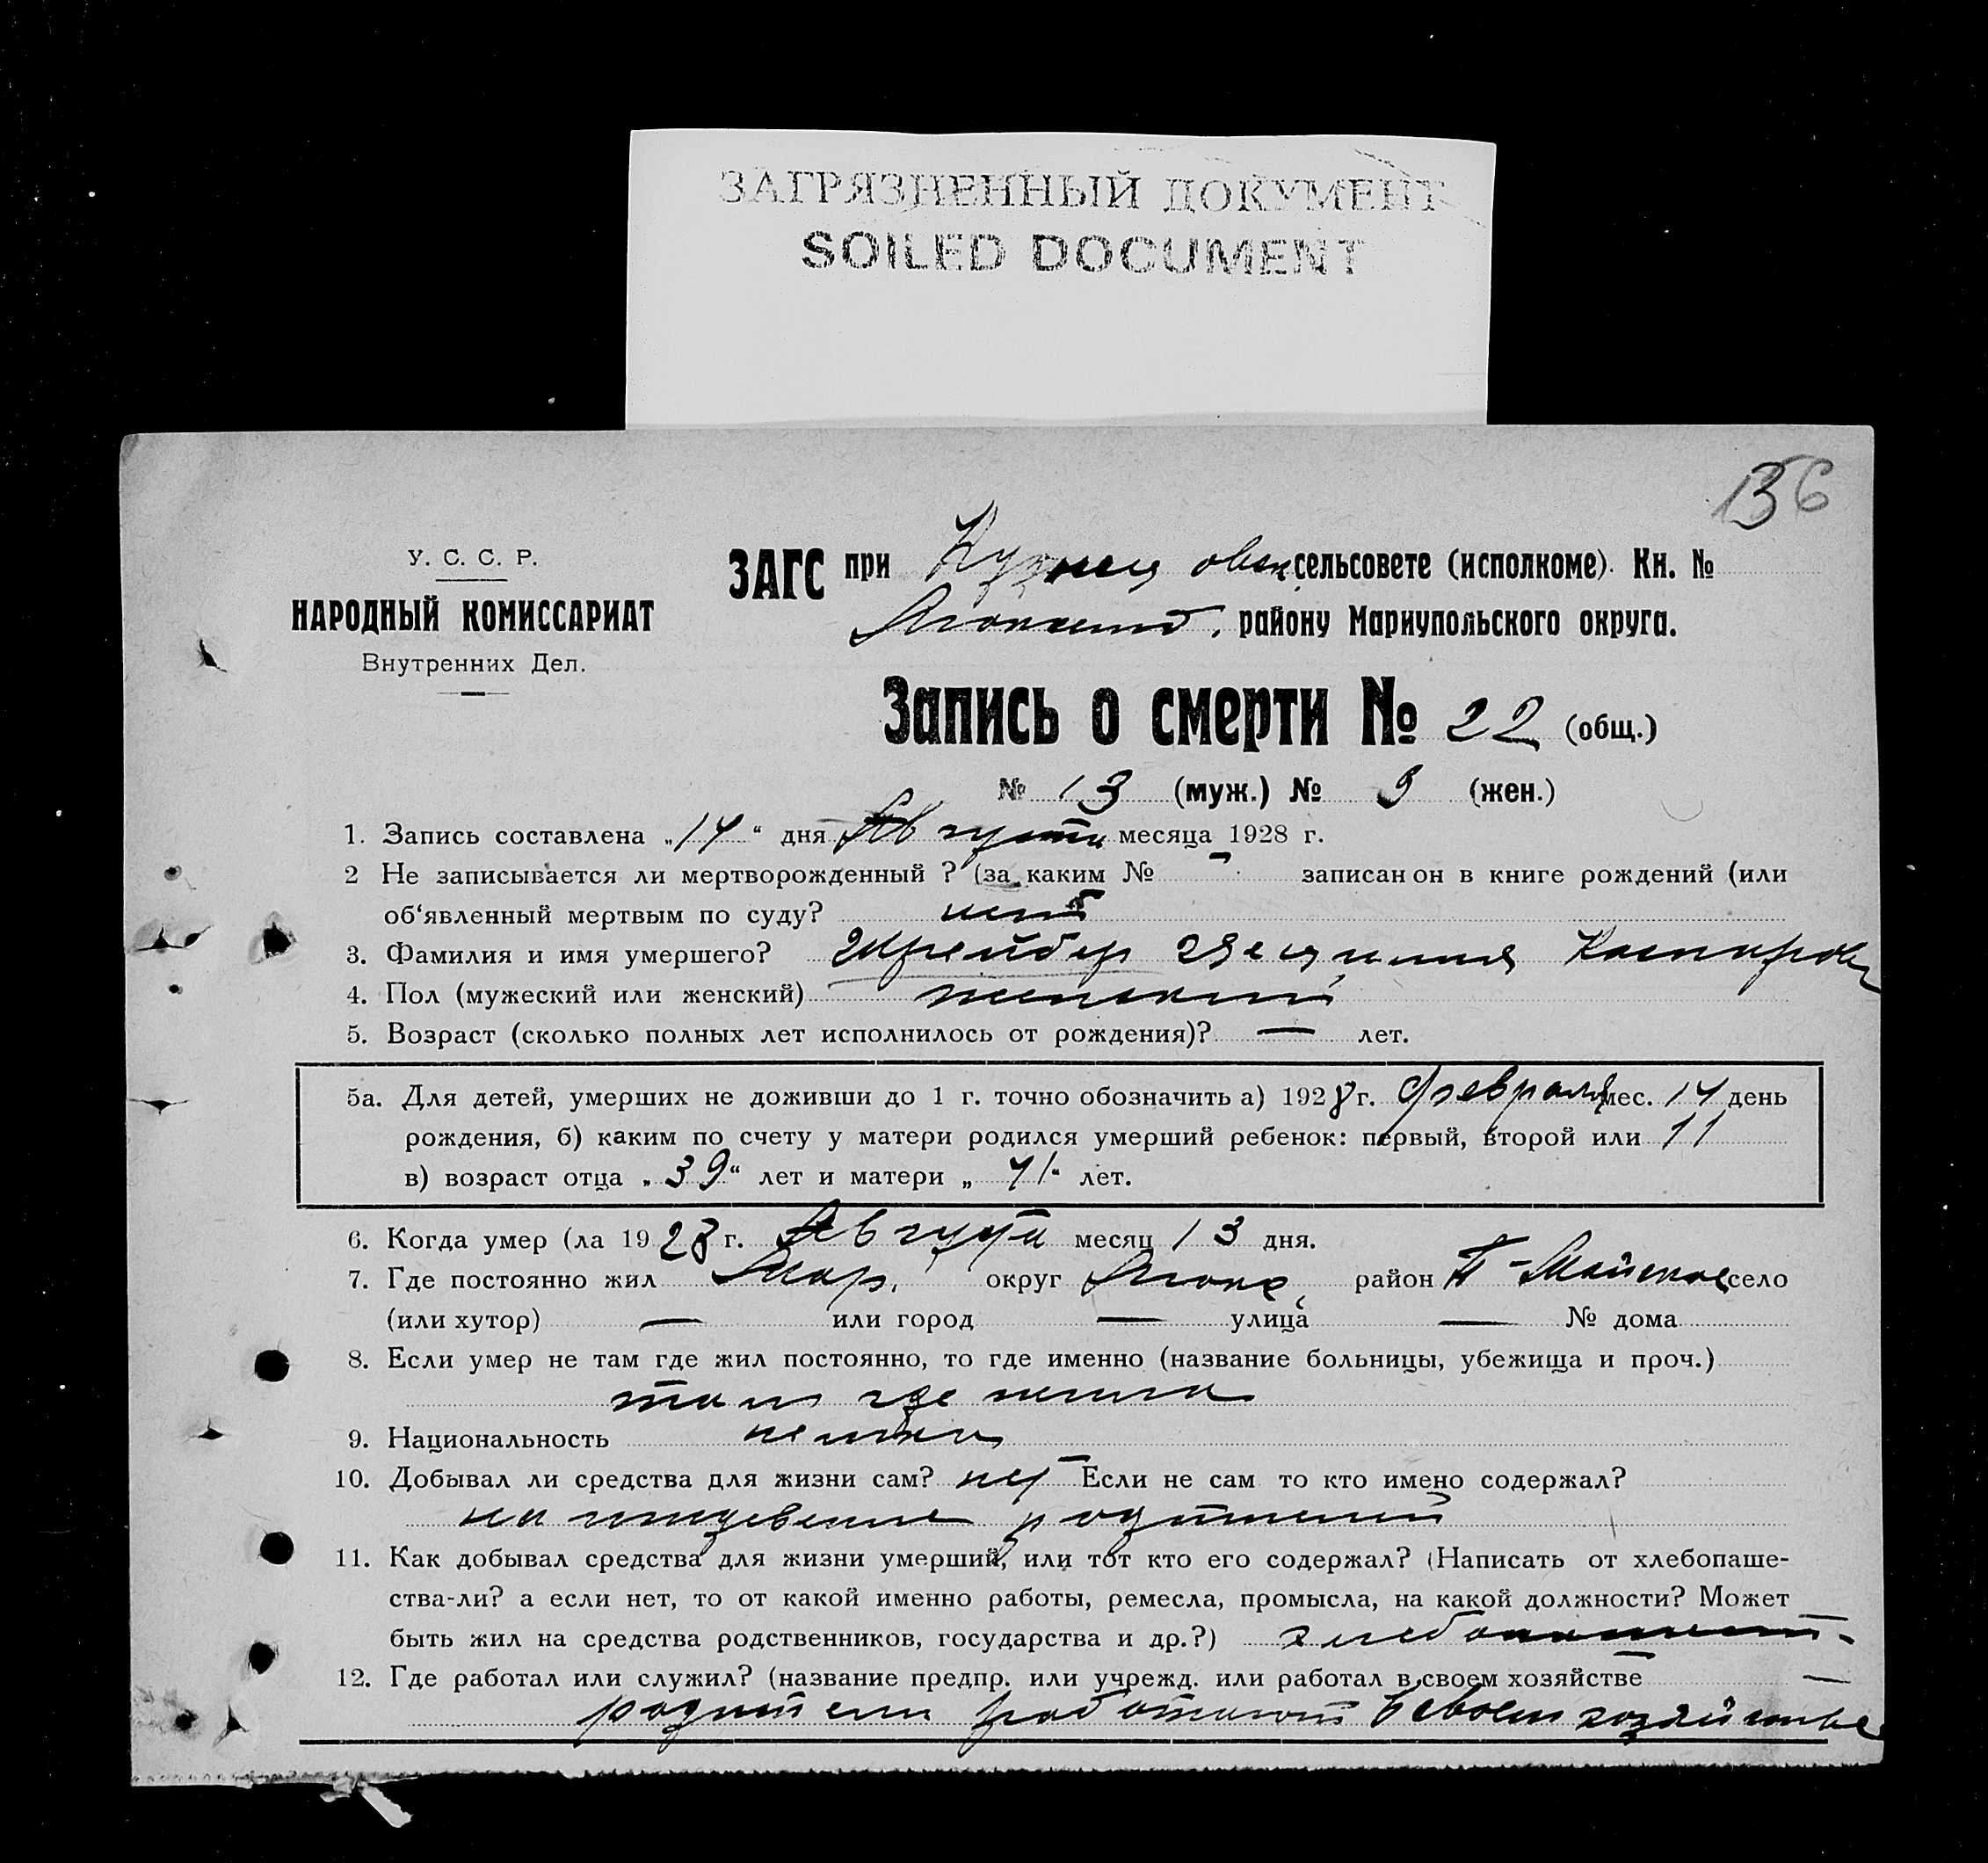 ЗАГРЯЗНЕННЫЙ ДОКУМЕНТ
SOILED DOCUMENT
136
У. С. С. Р.
НАРОДНЫЙ КОМИССАРИАТ
Внутренних Дел.
ЗАГС при сельсовете (исполкоме). Кн. №
району Мариупольского округа.
Запись о смерти № 22 (общ.)
№ 13 (муж.) № 9 (жен.)
1. Запись составлена „14“ дня Августа месяца 1928 г.
2 Не записывается ли мертворожденный ? (за каким № — записан он в книге рождений (или
об‘явленный мертвым по суду? нет
3. Фамилия и имя умершего? Шрейбер
4. Пол (мужеский или женский) женский
5. Возраст (сколько полных лет исполнилось от рождения)? — лет.
5а. Для детей, умерших не доживши до 1 г. точно обозначить а) 1928 г. Февраля мес. 14 день
рождения, б) каким по счету у матери родился умерший ребенок: первый, второй или 11
в) возраст отца „39“ лет и матери „41“ лет.
6. Когда умер (ла 1928 г. Августа месяц 13 дня.
7. Где постоянно жил Мар. округ район село
(или хутор) — или город — улица — № дома
8. Если умер не там где жил постоянно, то где именно (название больницы, убежища и проч.)
там где жила
9. Национальность немка
10. Добывал ли средства для жизни сам? нет Если не сам то кто имено содержал?
на иждевение родителей
11. Как добывал средства для жизни умерший, или тот кто его содержал? (Написать от хлебопаше-
ства-ли? а если нет, то от какой именно работы, ремесла, промысла, на какой должности? Может
быть жил на средства родственников, государства и др.?)
12. Где работал или служил? (название предпр. или учрежд. или работал в своем хозяйстве —
родители работают в своем хозяйстве